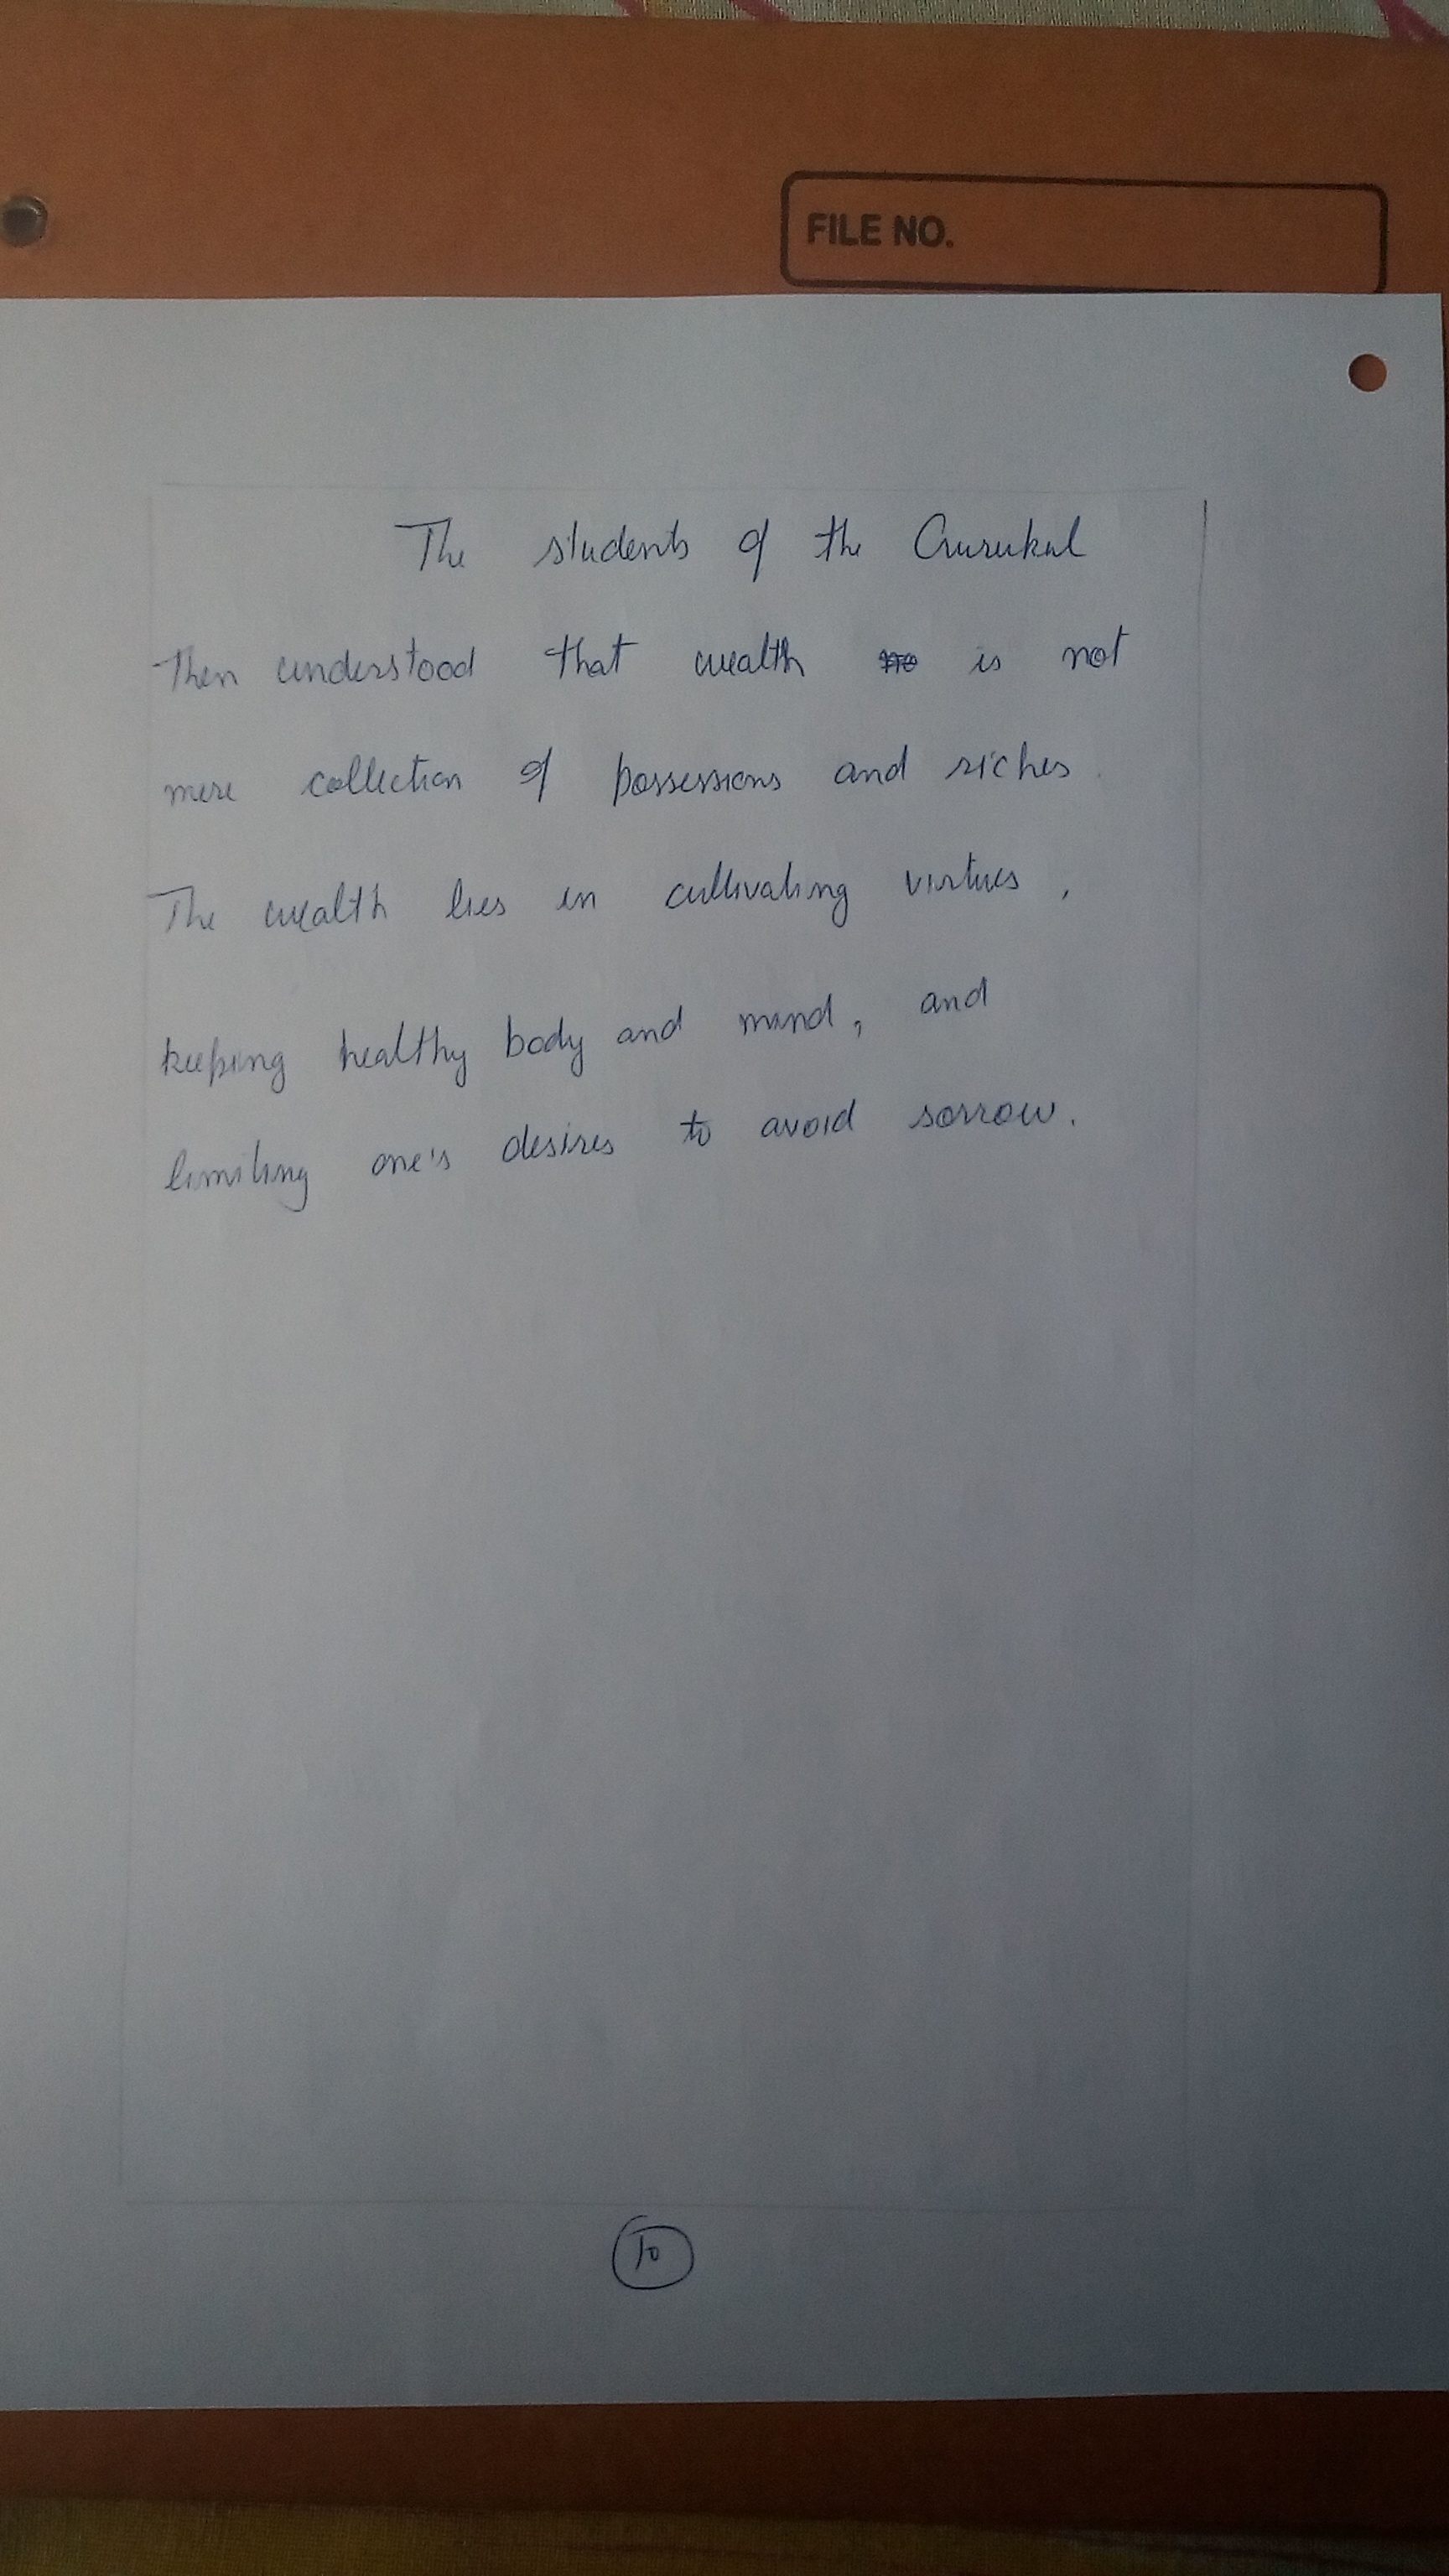 FILE NO.
The students of the Gurukul
then understood that wealth is not
mere collection of possessions and riches.
The wealth lies in cultivating virtues,
keeping healthy body and mind, and
limiting one's desires to avoid sorrow.
10